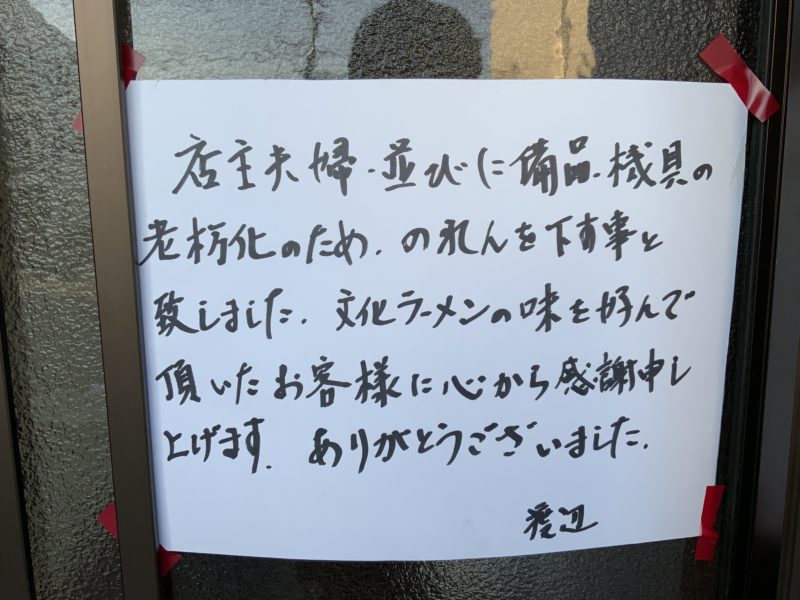 店主夫婦.並びに備品.機具の
老朽化のため.のれんを下す事と
致しました.文化ラーメンの味を好んで
頂いたお客様に心から感謝申し
上げます.ありがとうございました.
渡辺